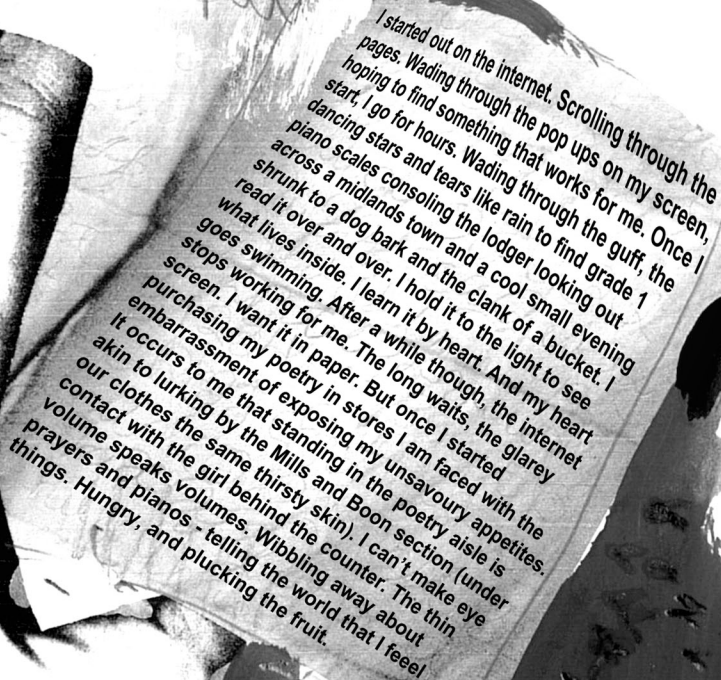 I started out on the internet. Scrolling through the
pages. Wading through the pop ups on my screen,
hoping to find something that works for me. Once I
start, I go for hours. Wading through the guff, the
dancing stars and tears like rain to find grade 1
piano scales consoling the lodger looking out
across a midlands town and a cool small evening
shrunk to a dog bark and the clank of a bucket. I
read it over and over. I hold it to the light to see
what lives inside. I learn it by heart. And my heart
goes swimming. After a while though, the internet
stops working for me. The long waits, the glarey
screen. I want it in paper. But once I started
purchasing my poetry in stores I am faced with the
embarrassment of exposing my unsavoury appetites.
It occurs to me that standing in the poetry aisle is
akin to lurking by the Mills and Boon section (under
our clothes the same thirsty skin). I can't make eye
contact with the girl behind the counter. The thin
volume speaks volumes. Wibbling away about
prayers and pianos - telling the world that I feeel
things. Hungry, and plucking the fruit.